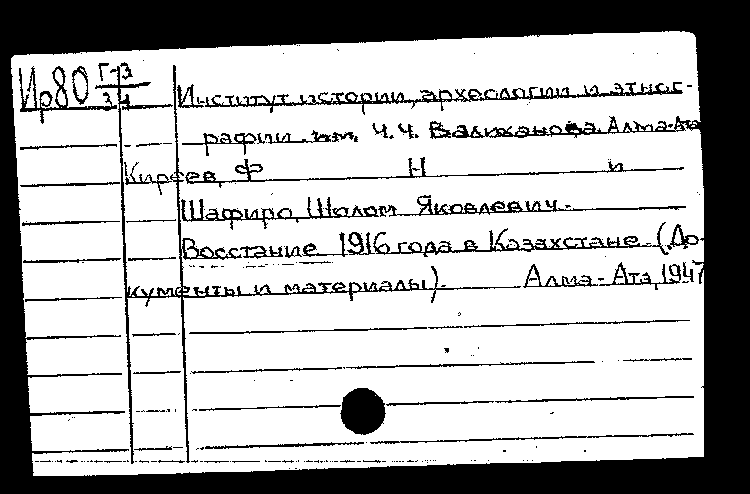 Ир80 Г-3
34
Институт истории, археологии и этног-
рафии им. Ч.Ч. Валиханова. Алма-Ата
Киреев, Ф Н и
Шафиро, Шолом Яковлевич.
Восстание 1916 года в Казахстане (До-
кументы и материалы). Алма-Ата, 1947